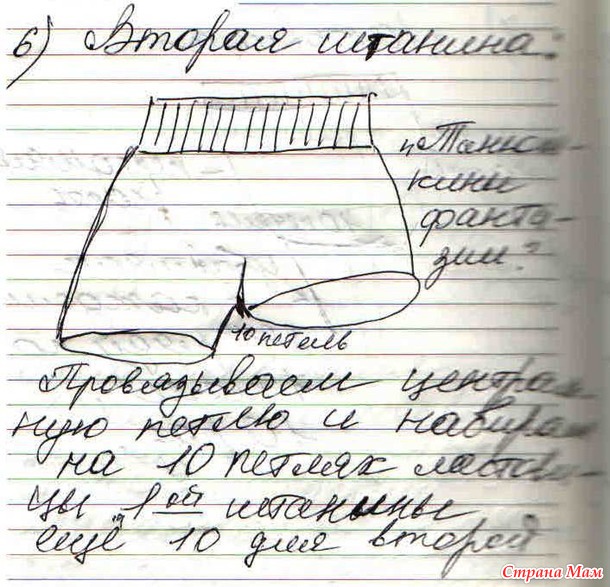 6) Вторая штанина:
"Танюш-
кины
фанта-
зии"
10 петель
Провязываем централь
ную петлю и набираем
на 10 петлях ластови-
цы 1ой штанины
ещё 10 для второй
Страна Мам